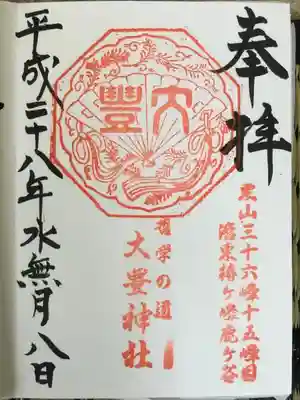 奉拝
東山三十六峰十五峰目
洛東椿ヶ峰鹿ヶ谷
大豐
哲学の道
大豊神社
平成二十八年水無月八日